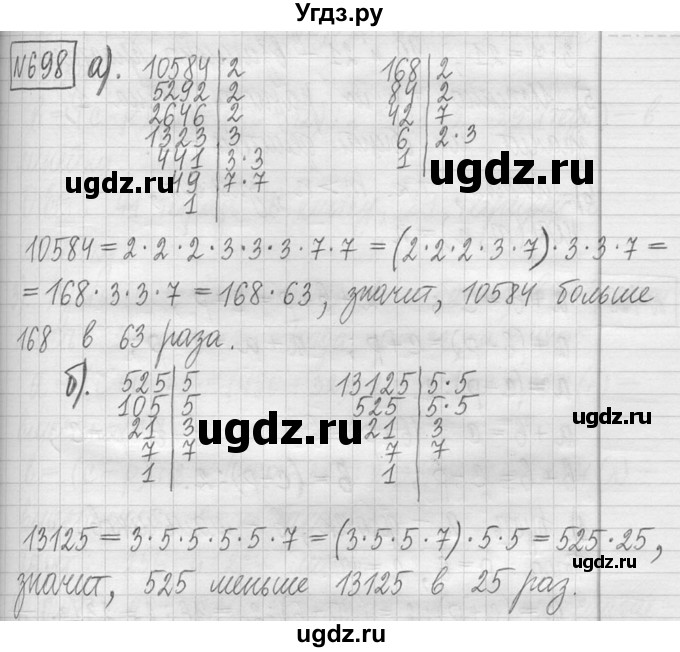 Угдз.ру
№698 а). 10584 | 2    168 | 2
5292 | 2    84 | 2
2646 | 2    42 | 7
1323 | 3    6 | 2·3
441 | 3·3    1
49 | 7·7
1
ugdz.ru ugdz.ru
10584 = 2·2·2·3·3·3·7·7 = (2·2·2·3·7)·3·3·7 =
= 168·3·3·7 = 168·63, значит, 10584 больше
168 в 63 раза.
б). 525 | 5    13125 | 5·5
105 | 5    525 | 5·5
21 | 3    21 | 3
7 | 7    7 | 7
1    1
ugdz.ru ugdz.ru
13125 = 3·5·5·5·5·7 = (3·5·5·7)·5·5 = 525·25,
значит, 525 меньше 13125 в 25 раз.
ugdz.ru
ugdz.ru